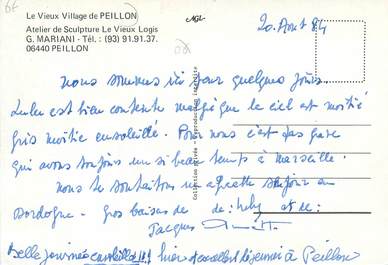 Le Vieux Village de PEILLON
Atelier de Sculpture Le Vieux Logis
G. MARIANI - Tél. : (93) 91.91.37.
06440 PEILLON
20. Aout 84
Nous sommes ici pour quelques jours.
Lulu est bien contente malgré que le ciel est moitié
gris moitié ensoleillé. Pour nous c'est pas grave
qui avons toujours un si beau temps à Marseille.
Nous te souhaitons un agréable séjour en
Dordogne. Gros baisers de de: et de:
Jacques
Belle journée !!! hier et excellent déjeuner à Peillon
Collection privée - Reproduction interdite